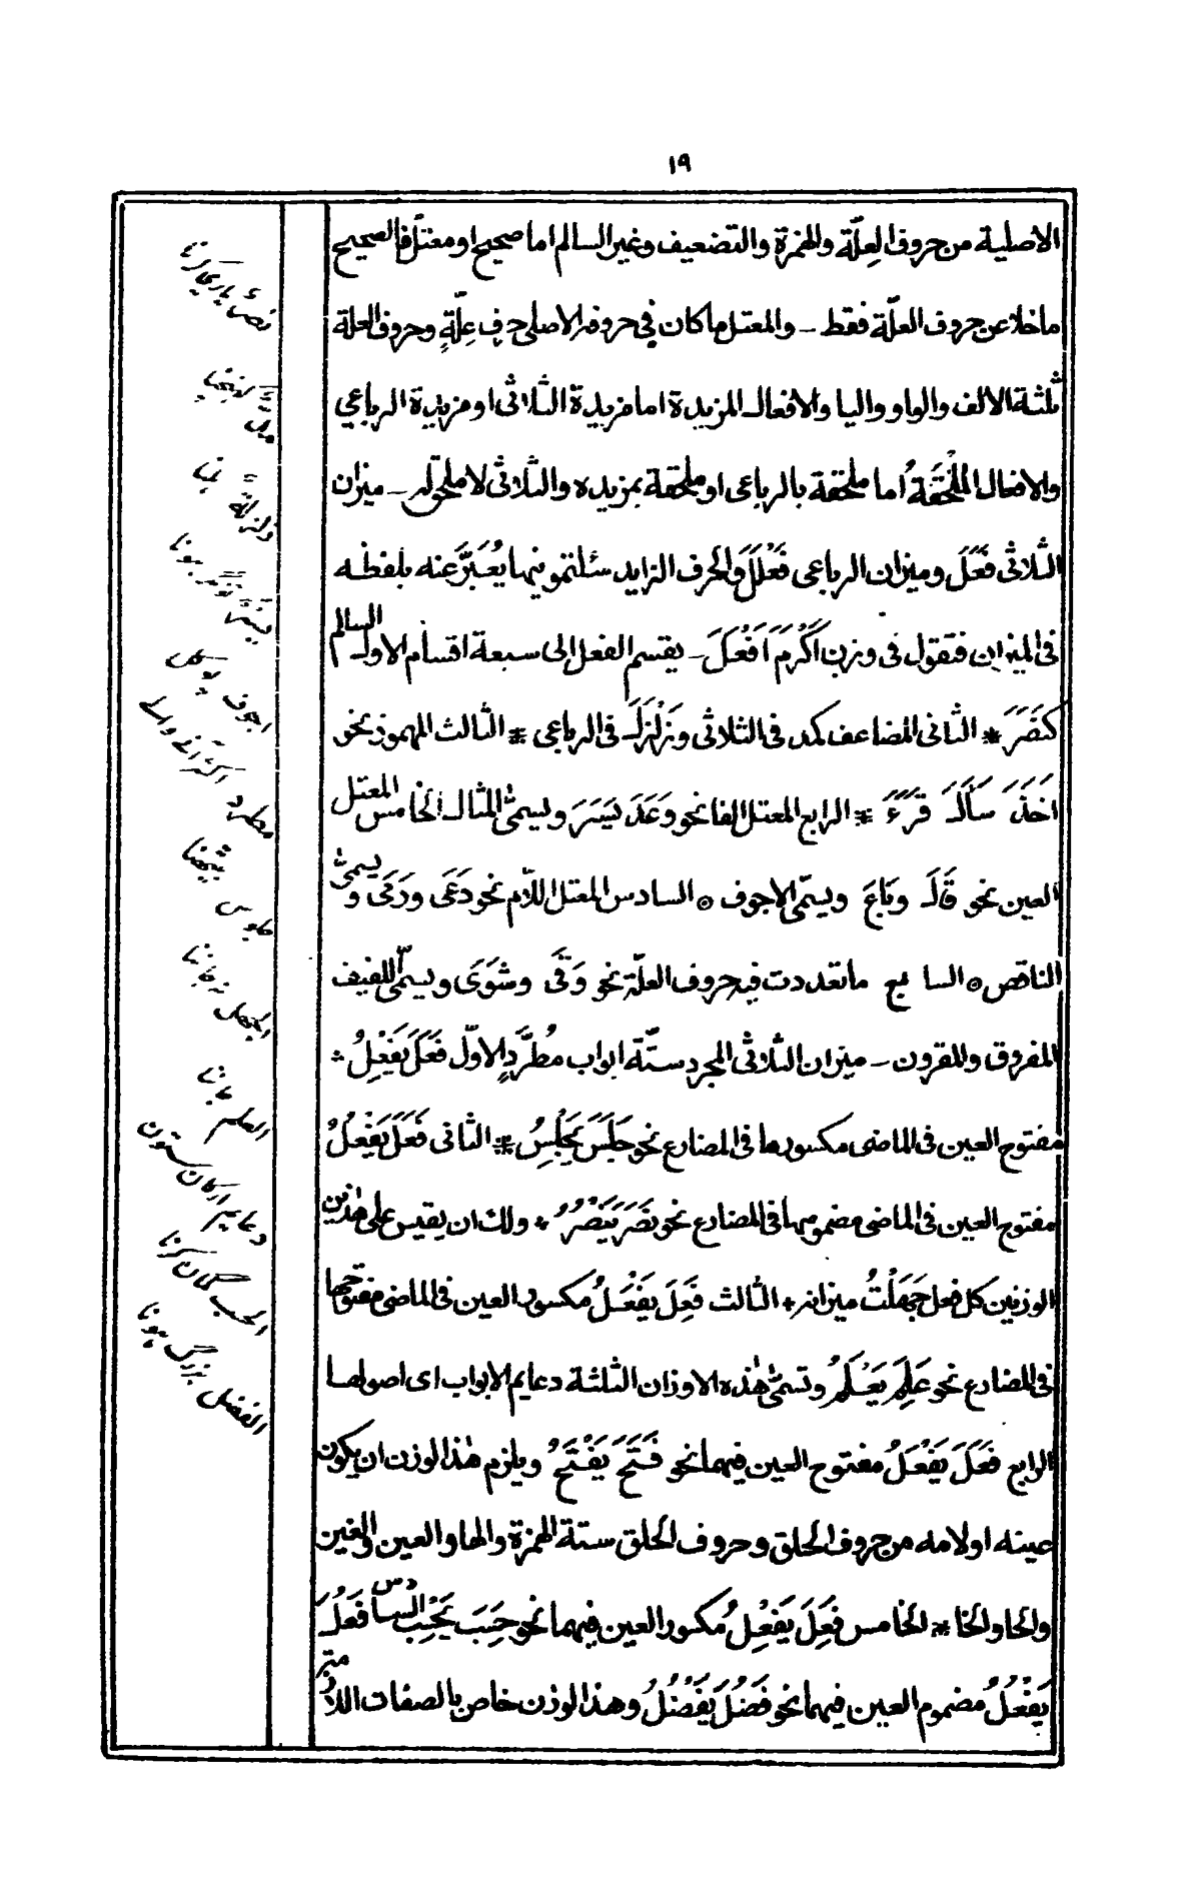 ١٩
الاصلية من حروف العِلّة والهمزة والتضعيف وغير السالم اما صحيح او معتلّ فالصحيح
ماخلا عن حروف العلّة فقط ـ والمعتل ما كان في حروفه الاصلى حرف عِلّةٍ وحروف العلة
ثلثة الالف والواو واليا والافعال المزيدة اما مزيدة الثلاثى او مزيدة الرباعي
والافعال المُلْحَقَةُ اما ملحقة بالرباعى او ملحقة بمزيده والثلاثى لا ملحق له ـ ميزان
الثلاثى فَعَلَ وميزان الرباعى فَعْلَلَ والحرف الزايد سئلتمونيها يُعَبَّرُ عنه بلفظه
فى الميزان فتقول فى وزن اَكْرَمَ اَفْعَلَ ـ يقسم الفعل الى سبعة اقسام الاول السالم
كنَصَرَ * الثانى المضاعف كمد فى الثلاثى وَزَلْزَلَ فى الرباعى * الثالث المهموز نحو
اَخَذَ سَأَلَ قَرَءَ * الرابع المعتل الفا نحو وَعَدَ يَسَرَ ويسمّى المثال الخامس المعتل
العين نحو قَالَ وبَاعَ ويسمّى الاجوف ٥ السادس المعتل اللّام نحو دَعَى ورَمَى ويسمىّ
الناقص ٥ السابع ماتعددت فيه حروف العلّة نحو وَقَى وشَوَى ويسمّى اللفيف
المفروق والمقرون ـ ميزان الثلاثى المجرد ستّة ابواب مُطَّرَدٍ الاوّل فَعَلَ يَفْعِلُ
مفتوح العين فى الماضى مكسورها فى المضارع نحو جَلَسَ يَجْلِسُ * الثانى فَعَلَ يَفْعُلُ
مفتوح العين فى الماضى مضمومها فى المضارع نحو نَصَرَ يَنْصُرُ * ولك ان يقيس على هذين
الوزنين كل فعل جَهِلْتُ ميزانه * الثالث فَعِلَ يَفْعَلُ مكسور العين فى الماضى مفتوحها
فى المضارع نحو عَلِمَ يَعْلَمُ وتسمّى هذه الاوزان الثلثة دعايم الابواب اى اصولها
الرابع فَعَلَ يَفْعَلُ مفتوح العين فيهما نحو فَتَحَ يَفْتَحُ ويلزم هذا الوزن ان يكون
عينه او لامه من حروف الحلق وحروف الحلق ستة الهمزة والها والعين والغين
والحا والخا * الخامس فَعِلَ يَفْعِلُ مكسور العين فيهما نحو حَسِبَ يَحْسِبُ السادس فَعُلَ
يَفْعُلُ مضموم العين فيهما نحو فَضُلَ يَفْضُلُ وهذا الوزن خاص بالصفات اللازمة
مدّ كهينچنا
اجوف پوكل
مطرد اكثر آنے والے
جلوس بيٹهنا
الجهل نہ جاننا
العلم جاننا
دعايم اركان ستون
الحسب گمان كرنا
الفضل بزرگ ہونا